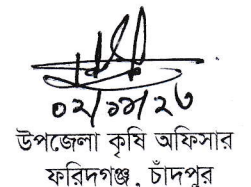 ০২/১১/২৩
উপজেলা কৃষি অফিসার
ফরিদগঞ্জ, চাঁদপুর